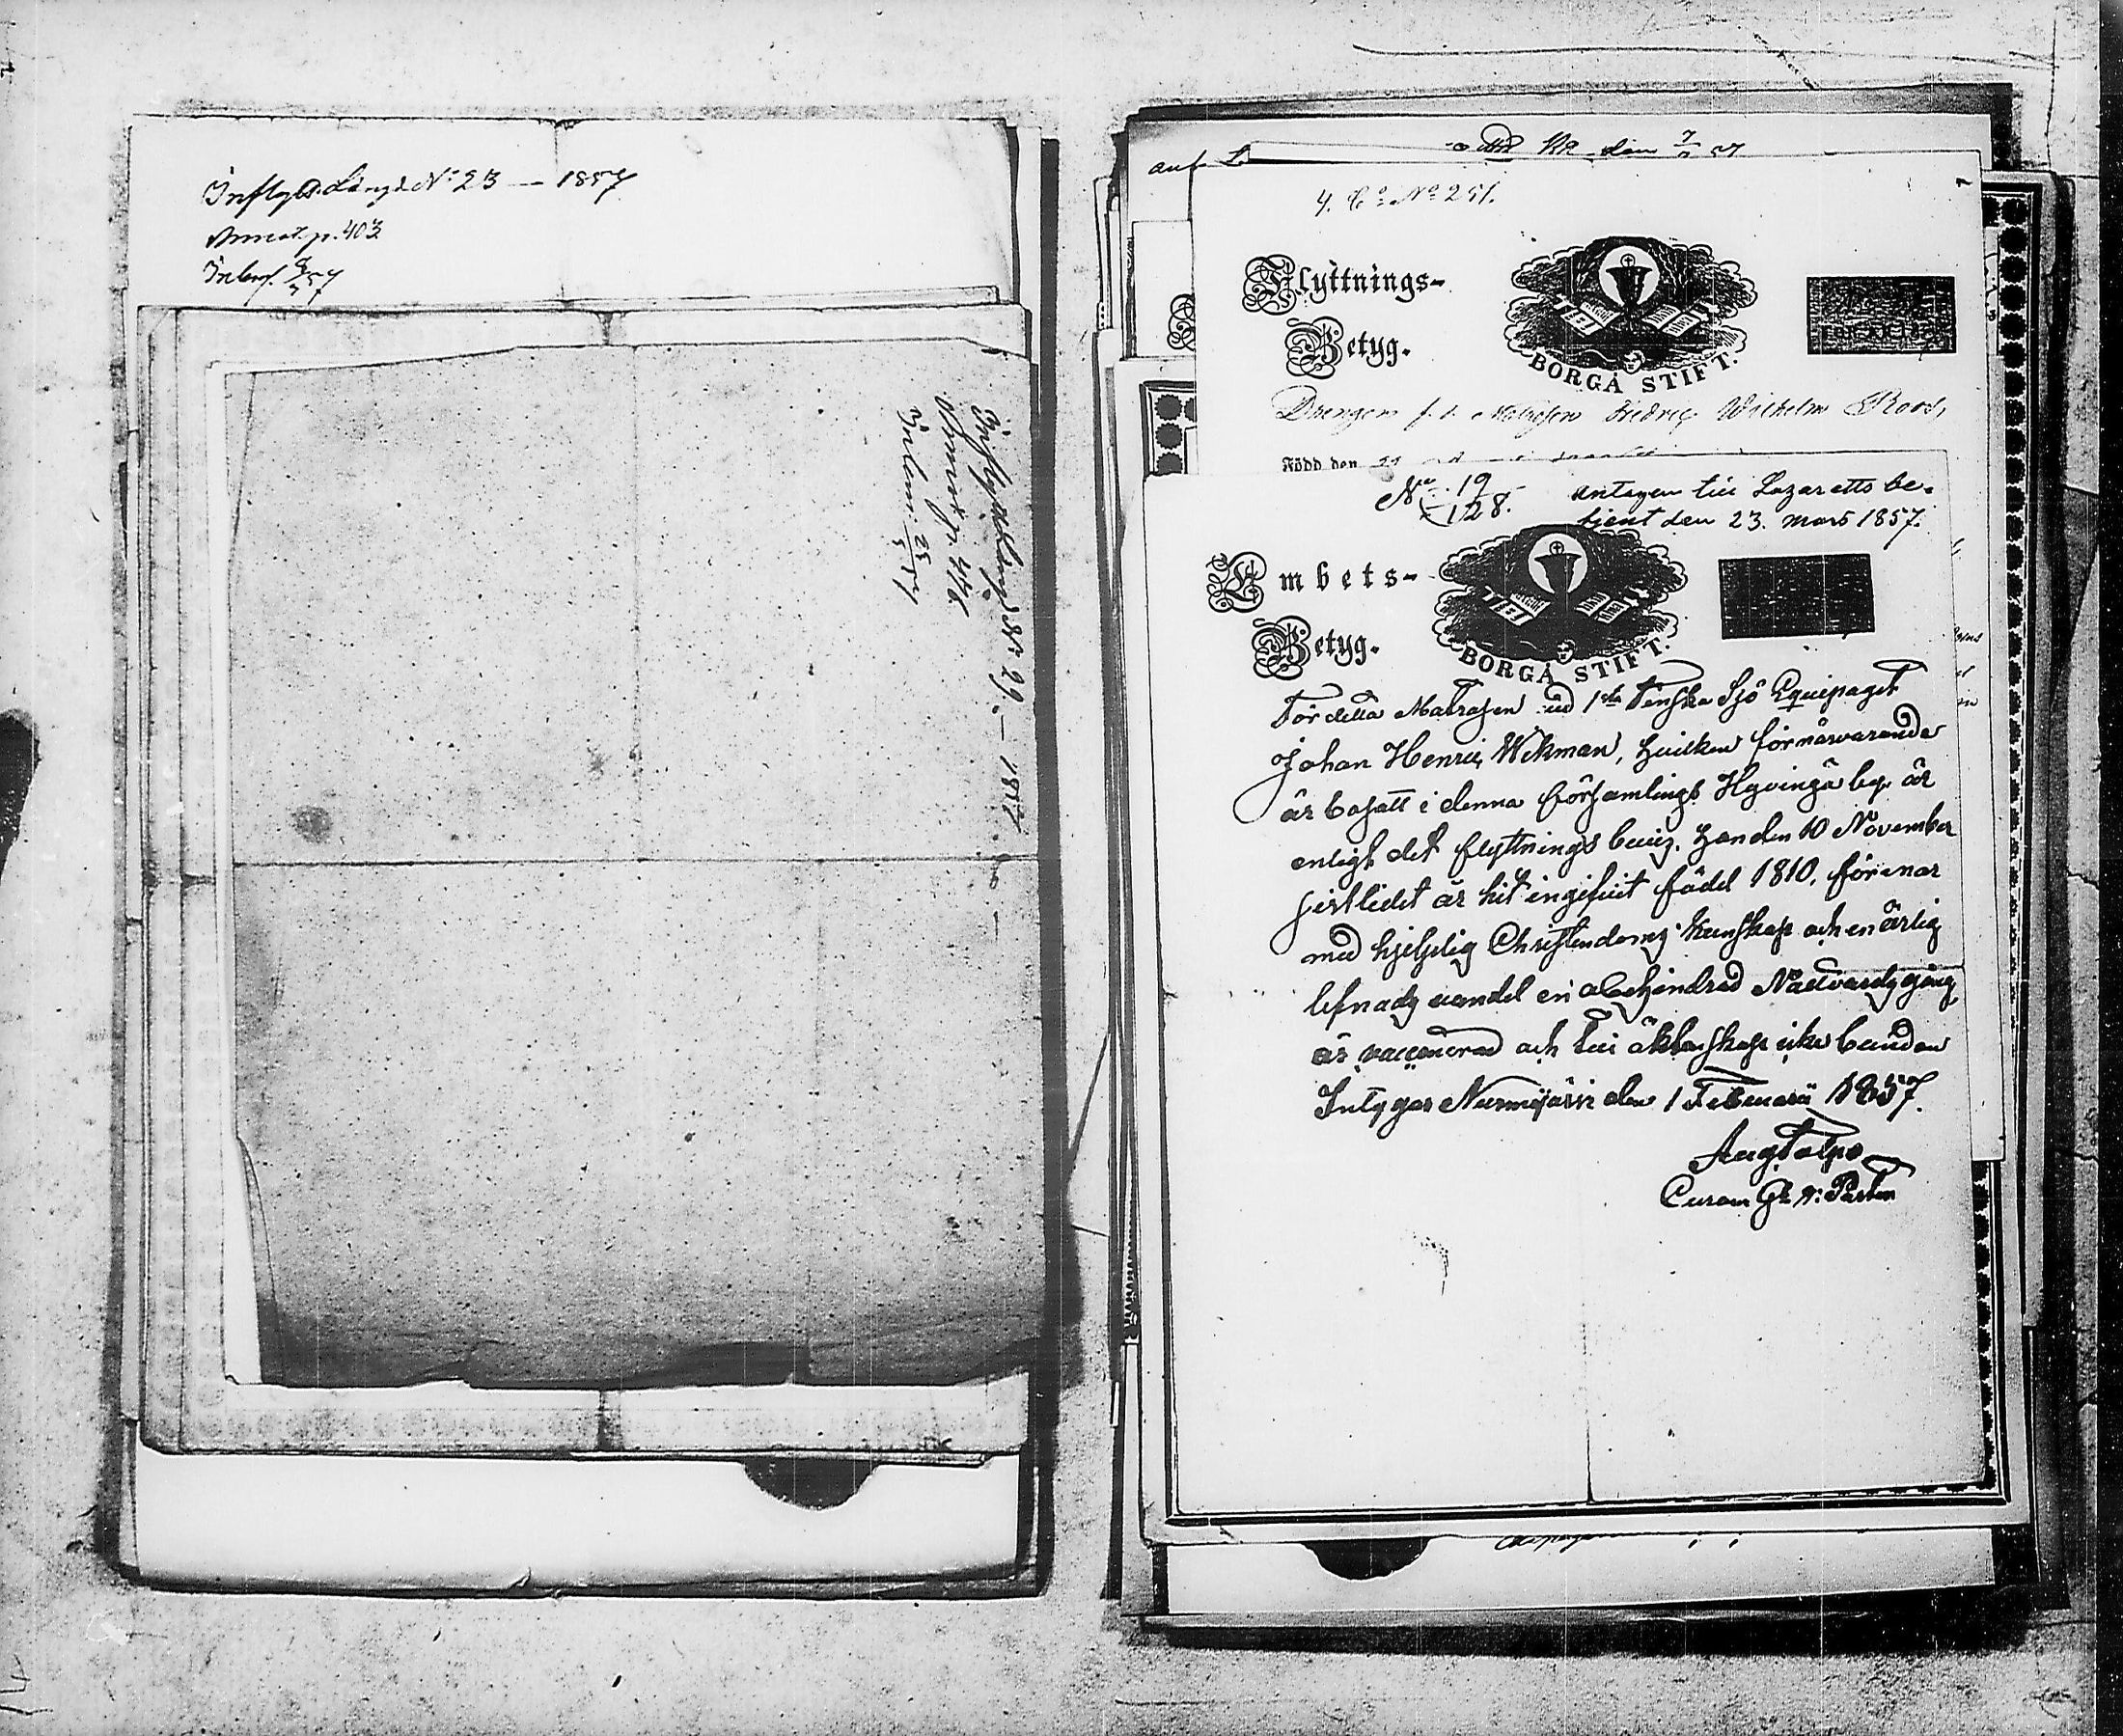 Inflyttn. Längd N:o 23 — 1857
Annot. p. 403
Inbem. 57
Inflyttn. Läng. N:o 29. — 1857.
Annot. p. 446
Inlem. 25/5 57
den
4. C:o N:o 251.
Flyttnings-
Betyg.
BORGÅ STIFT.
Drengen f. d. Matrosen Fredric Wilhelm Roos,
Född den
N:o 19
128.
Antagen till Lazaretts be-
tjent den 23. mars 1857.
Embets-
Betyg.
BORGÅ STIFT.
För detta Matrosen vid 1sta Finska Sjö Equipaget
Johan Henric Wikman, hvilken förnärvarande
är bosatt i denna församlings Hyvingä by, är
enligt det flyttnings bevis, han den 10 November
sistlidet år hit ingifvit född 1810, förenar
med hjelplig Christendoms kunskap och en ärlig
lefnads vandel en obehindrad Nattvardsgång
är vaccinerad och till äktenskap icke bunden
Intygar Nurmijärvi den 1 Februarii 1857.
Aug
Curam G:r v: Pastor